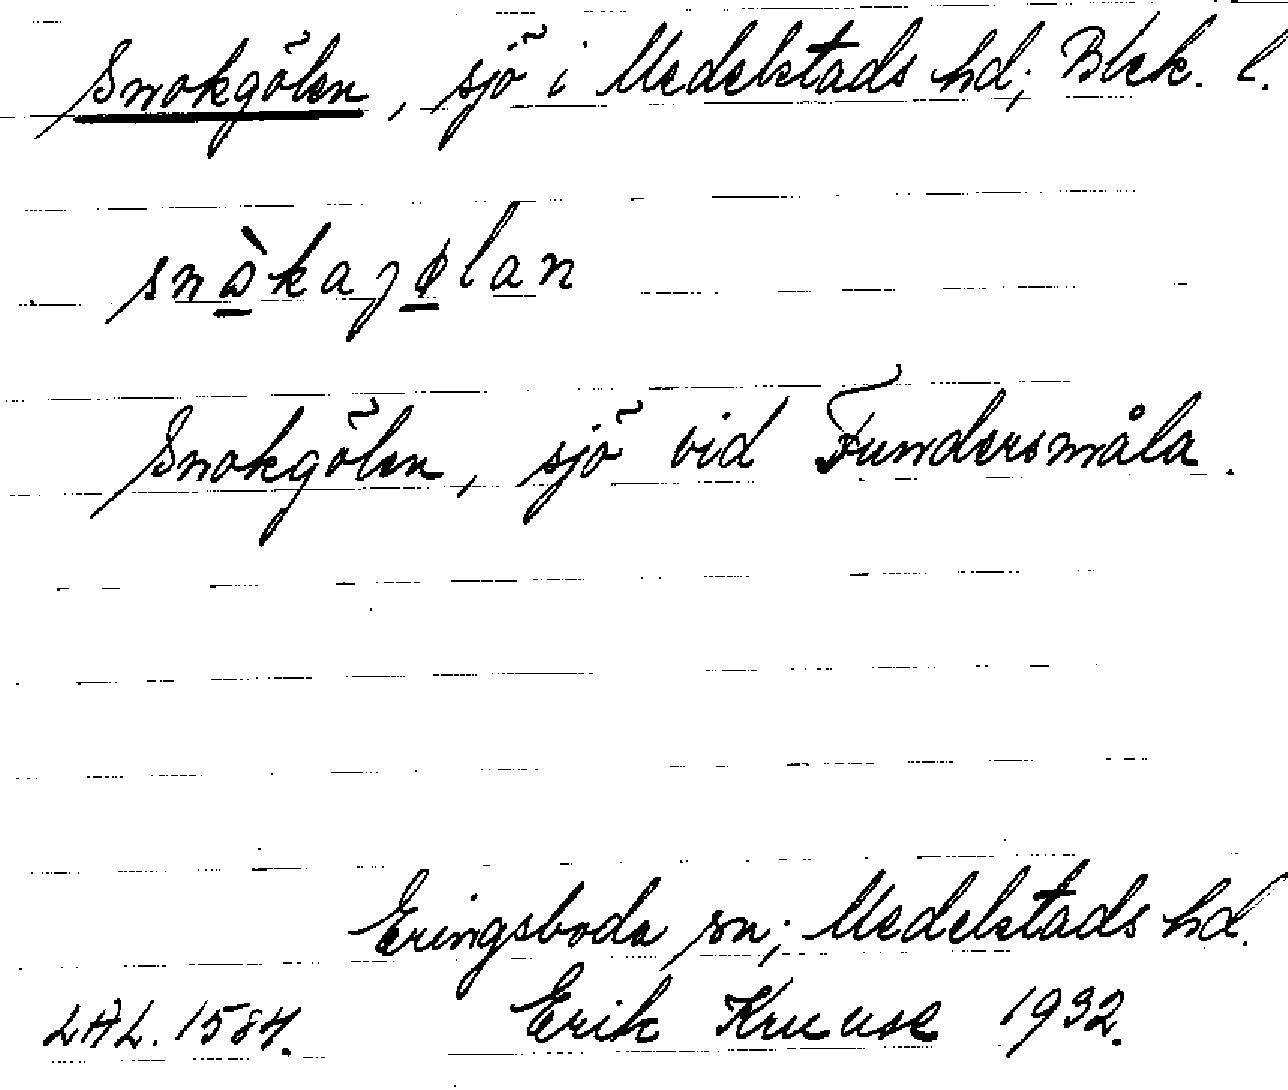 Snokgölen, sjö i Medelstads hd; Blek. l.
snòkajølan
Snokgölen, sjö vid Fundersmåla.
Eringsboda sn; Medelstads hd.
LAL. 1584. Erik Kruuse 1932.